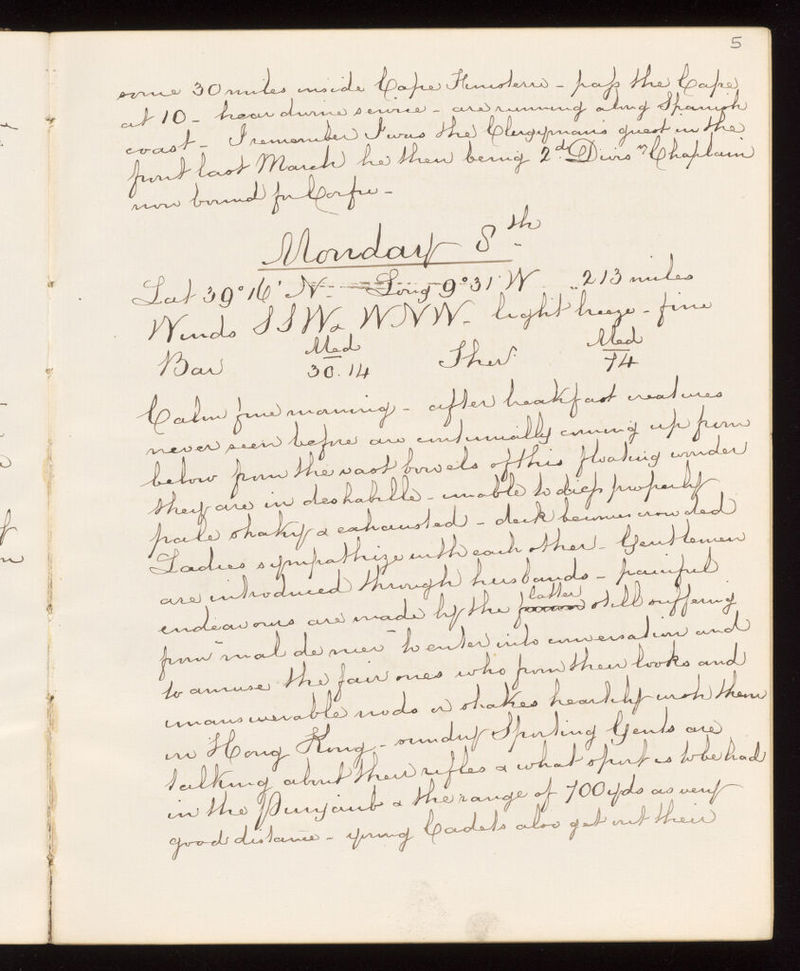 5
some 30 miles inside Cape Finisterre - pass the Cape
at 10 - hear divine service - are running along Spanish
coast - I remember I was the Clergyman's guest in the
front last March he then being 2d Divisn Chaplain
now bound for Corfu -
Monday 8th
Lat 39°16' N - Long 9°31' W .. 213 miles
Winds SSW & WNW - light breeze - fine
Bar Med 30.14 Ther Med 74
Calm fine morning - after breakfast creatures
never seen before are continually coming up from
below from the vast bowels of this floating wonder
they are in deshabille - unable to dress properly
pale shaky & exhausted - deck becomes crowded
Ladies sympathize with each other - Gentlemen
are introduced through husbands - painful
endeavours are made by the latter still suffering
from "mal de mer" to enter into conversation and
to amuse the fair ones who from their looks and
unanswerable nods or shakes heartily wish them
in Hong Kong - sundry Sporting Gents are
talking about their rifles & what sport is to be had
in the Punjaub & the range of 700 yds as very
good distance - young Cadets also get out their